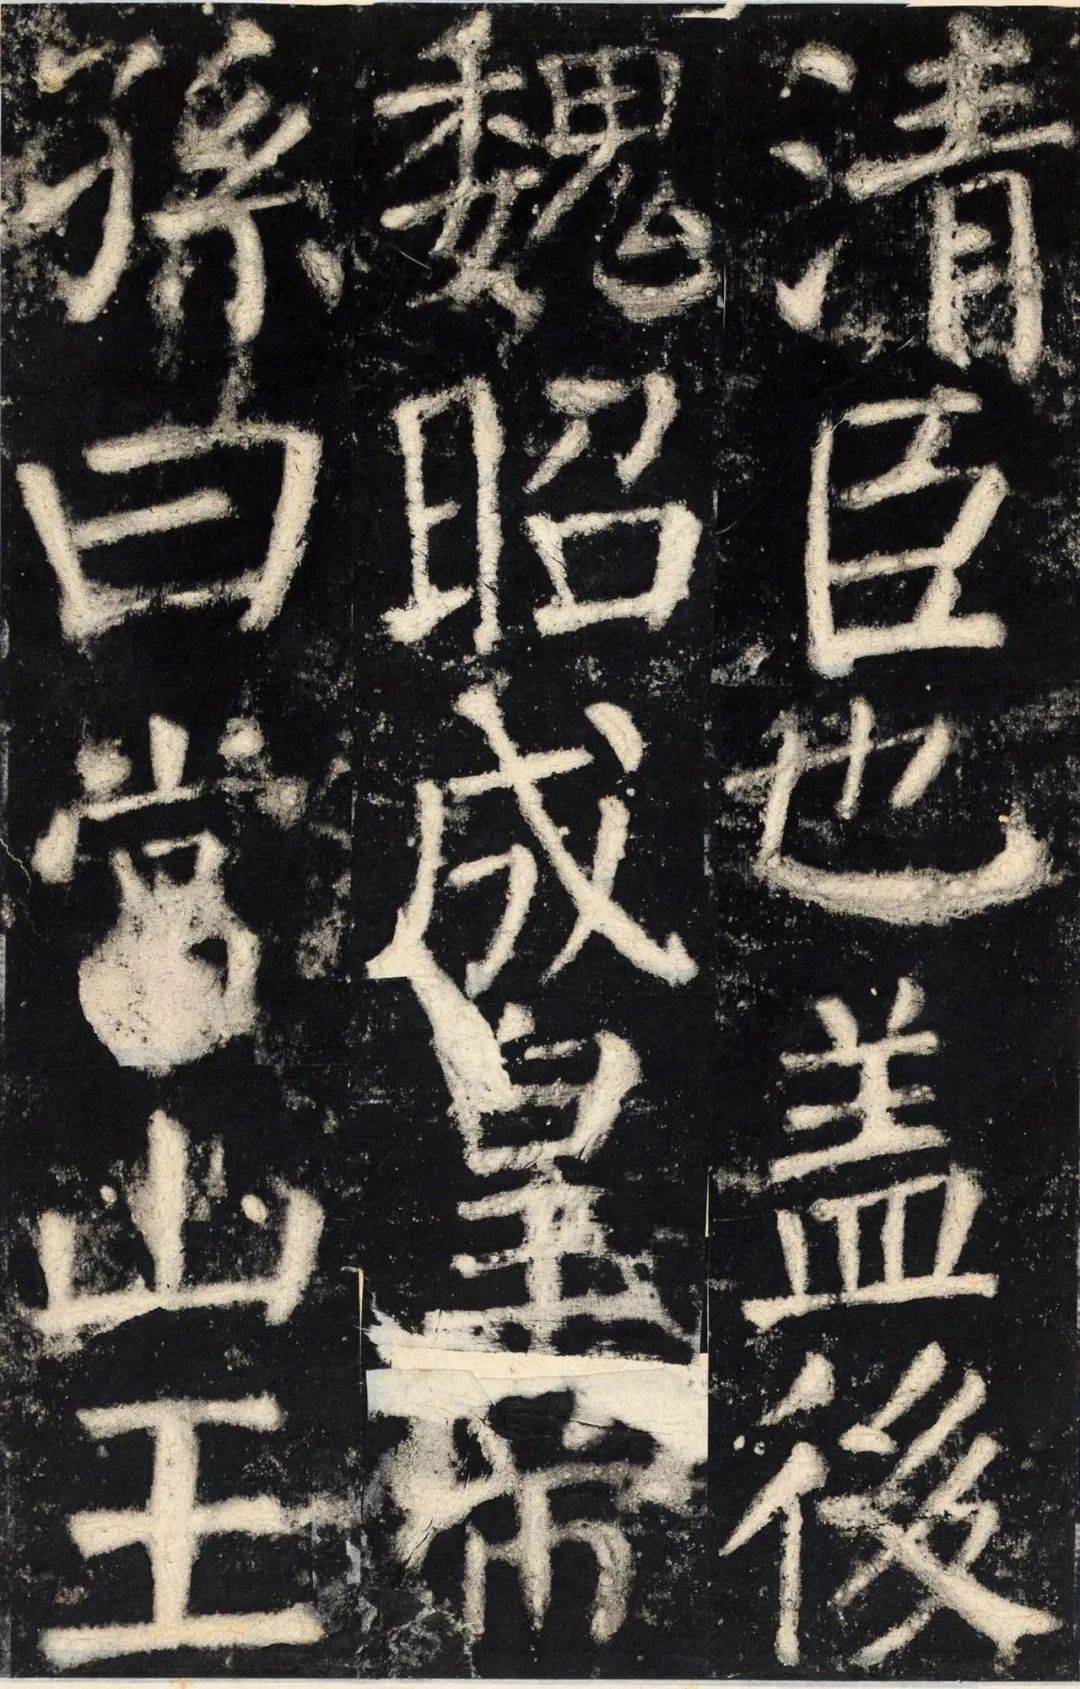 清臣也盖後
魏昭成皇帝
孫曰常山王